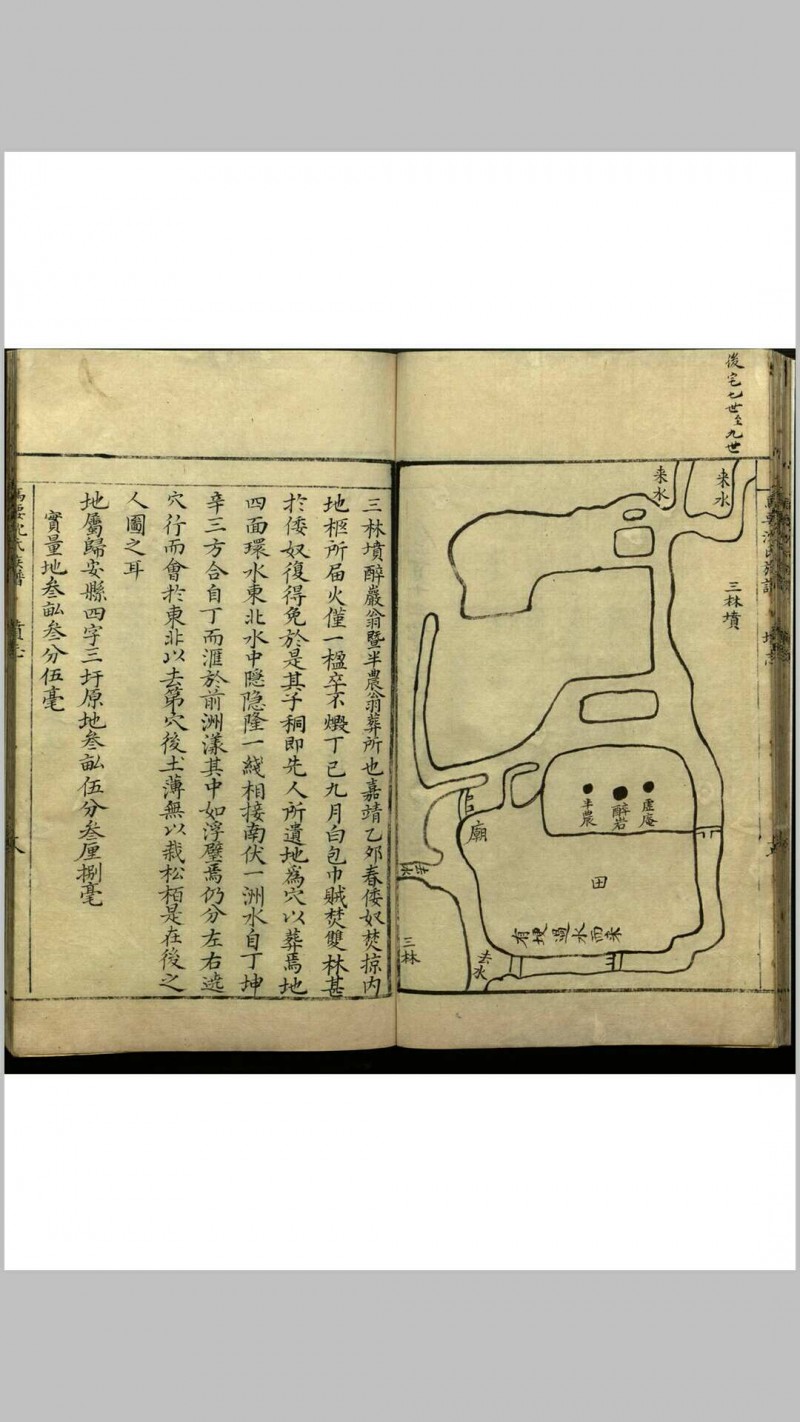 後宅七世至九世
三林墳
来水
来水
虛庵
醉岩
半農
廟
田
有埂過水而来
去水
三林
三林墳醉巖翁暨半農翁葬所也嘉靖乙夘春倭奴焚掠内
地柩所届火僅一楹卒不燬丁巳九月白包巾賊焚雙林甚
於倭奴復得免於是其子桐即先人所遺地為穴以葬焉地
四面環水東北水中隱隱隆一綫相接南伏一洲水自丁坤
辛三方合自丁而滙於前洲漾其中如浮璧焉仍分左右遶
穴行而會於東北以去第穴後土薄無以栽松栢是在後之
人圖之耳
地屬歸安縣四字三圩原地叁畆伍分叁厘捌毫
實量地叁畆叁分伍毫